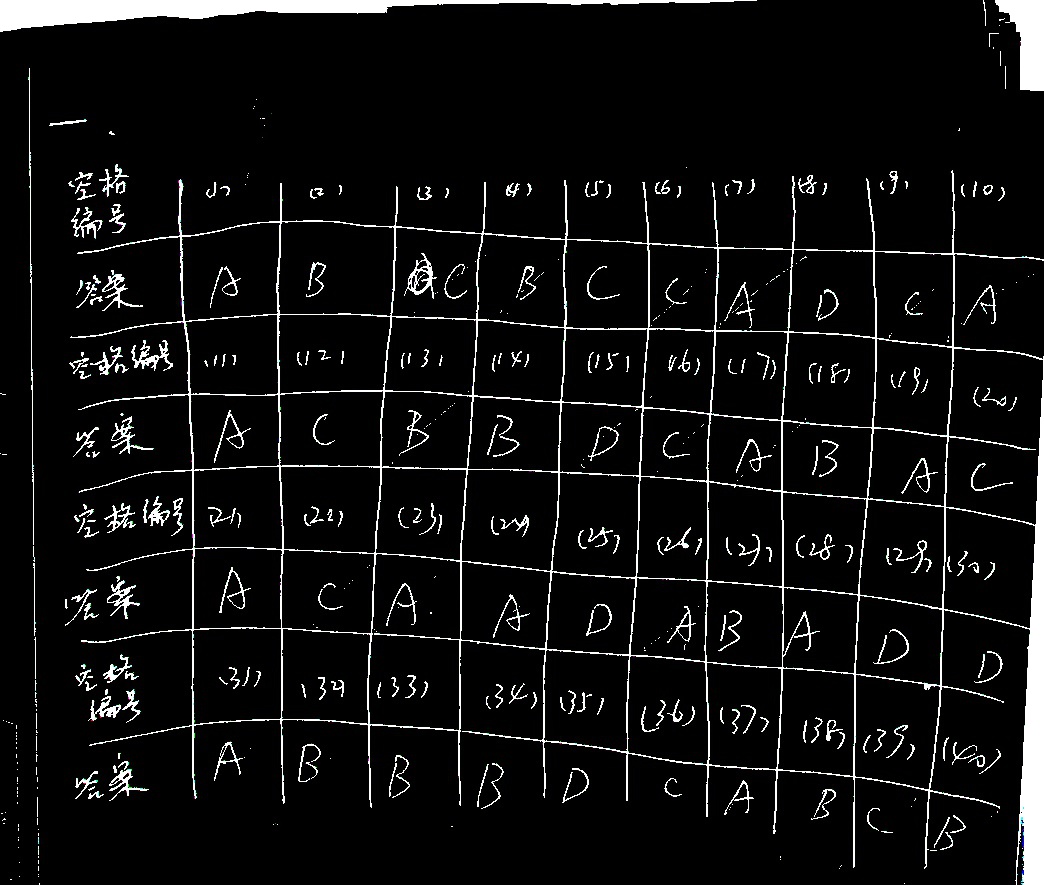 一、
空格编号 (1) (2) (3) (4) (5) (6) (7) (8) (9) (10)
答案 A B C B C C A D C A
空格编号 (11) (12) (13) (14) (15) (16) (17) (18) (19) (20)
答案 A C B B D C A B A C
空格编号 (21) (22) (23) (24) (25) (26) (27) (28) (29) (30)
答案 A C A A D A B A D D
空格编号 (31) (32) (33) (34) (35) (36) (37) (38) (39) (40)
答案 A B B B D C A B C B